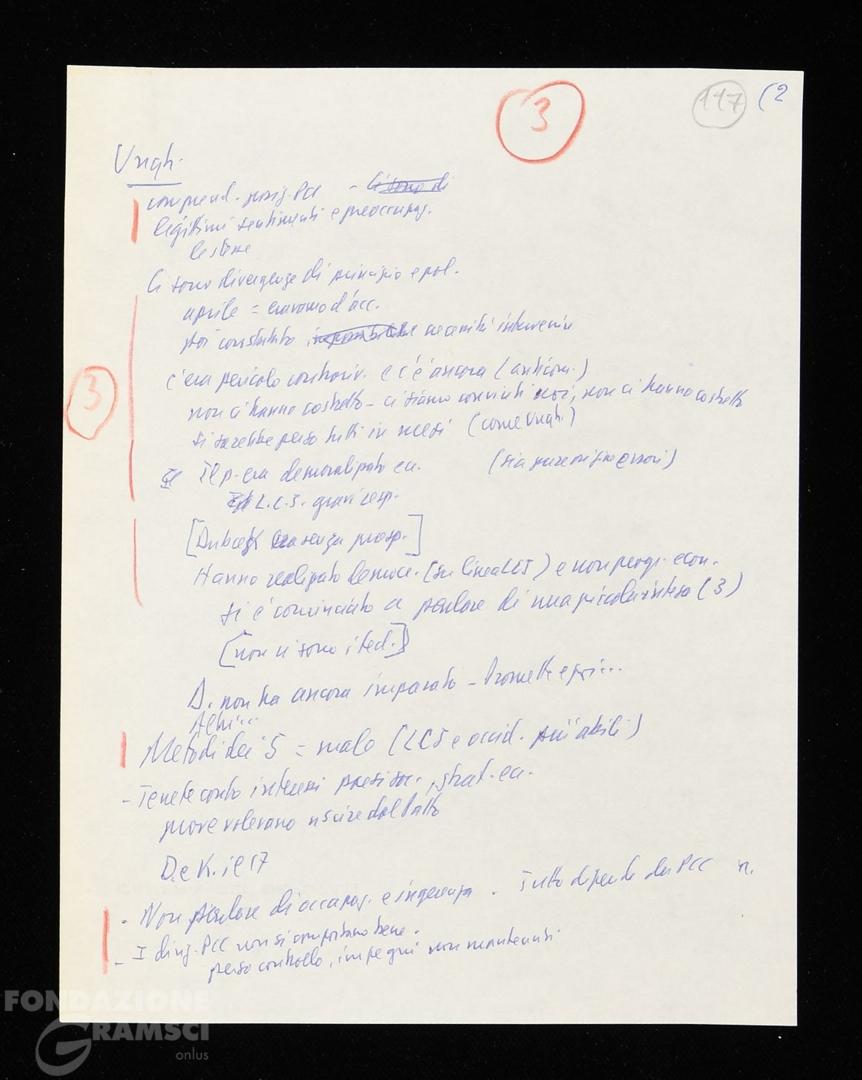 3
117 (2
Ungh.
comprend. posiz. PCC - Ci sono di
legittimi sentimenti e preoccupaz.
le stesse
Ci sono divergenze di principio e pol.
aprile = eravamo d'acc.
poi constatato necessità intervenire
c'era pericolo controriv. e c'è ancora (anticom.)
non ci hanno costretto - ci siamo convinti noi, non ci hanno costretto
si sarebbe perso tutti in mesi (come Ungh.)
3
Il p. era demoralizzato ecc. (sia pure errori)
L.C.J. gravi resp.
[Dubcek senza prosp.]
Hanno realizzato democr. (su linea LCJ) e non progr. econ.
Si è cominciato a parlare di una piccola intesa (3)
[non vi sono i ted.]
D. non ha ancora imparato - Promette e poi...
Metodi dei 5 = male (LCJ e occid. più abili)
- Tenete conto interessi paesi soc., strat. ecc.
volevano uscire dal Patto
D. e K. il 17
- Non parlare di occupaz. e ingerenza. Tutto dipende da PCC
- I dirig. PCC non si comportano bene.
perso controllo, impegni non mantenuti
FONDAZIONE
GRAMSCI
onlus